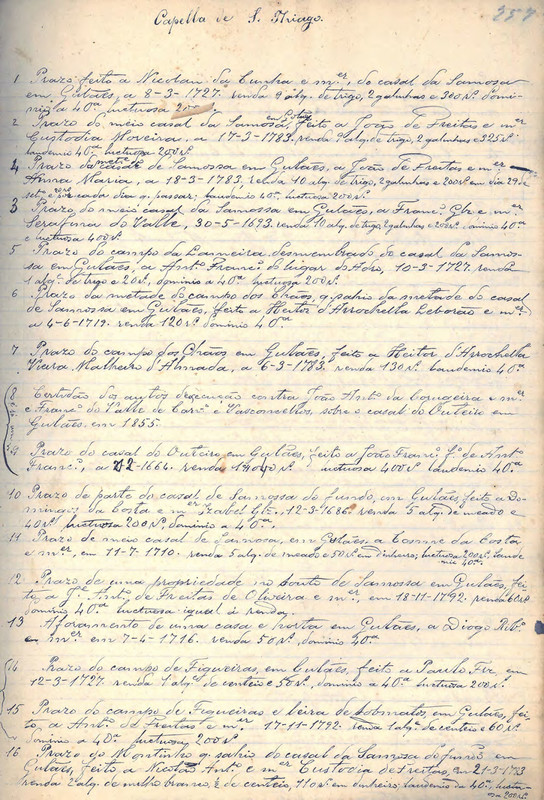 Capella de S. Thiago.
257
1 Prazo feito a Nicolau da Cunha e m.er, do casal da Samosa
em Gulães, a 8-3-1727. renda 9 alq. de trigo, 2 galinhas e 300 rs. domi-
nio a 40.na luctuosa 200
2 Prazo do meio casal da Samosa, em Gulães feito a João de Freitas e m.er
Custodia Moreira, a 17-3-1783. renda alq. de trigo, 2 galinhas e 325 rs.
laudemio 40.na luctuosa 200 rs.
4 Prazo da metade casal de Samossa em Gulães, a João de Freitas e m.er
Anna Maria, a 18-3-1783, renda 10 alq. de trigo, 2 galinhas e 200 rs. em dia 29 de
set. e por cada dia q. passar; laudemio 40.na luctuosa 200 rs.
3 Prazo do meio casal da Samossa em Gulães, a Franc.º Glz e m.er
Serafina do Valle, 30-5-1693. renda 10 alq. de trigo, 2 galinhas e dominio 40.na
e luctuosa 400 rs.
5 Prazo do campo da Lameira, desmembrado do casal da Samos-
sa em Gulães, a Ant.º Franc.º do lugar do Adro, 10-3-1727. renda
1 alq. de trigo e 20 rs., dominio a 40.na luctuosa 200 rs.
6 Prazo da metade do campo dos Chãos q. sahio da metade do casal
de Samossa em Gulães, feito a Heitor d'Arrochella Leborão e m.er
a 4-6-1719. renda 120 rs. dominio 40.na
7 Prazo do campo dos Chãos em Gulães, feito a Heitor d'Arrochella
Vieira Malheiro d'Almada, a 6-3-1783. renda 130 rs. laudemio 40.na
8 Certidão dos autos d'execução contra João Ant.º da Cerqueira e m.er
e Franc.º do Valle de Carv.º e Vasconcellos, sobre o casal do Outeiro em
Gulães, em 1855.
9 Prazo do casal do Outeiro em Gulães, feito a João Franc.º f.º de Ant.º
Franc.º, a 2-1664. renda luctuosa 400 rs. laudemio 40.na
10 Prazo de parte do casal de Samossa do fundo, em Gulães, feito a Do-
mingos da Costa e m.er Izabel Glz., 12-3-1686. renda 5 alq. de meado e
40 rs. luctuosa 200 rs., dominio a 40.na
11 Prazo de meio casal de Samossa, em Gulães, a Cosme da Costa
e m.er, em 11-7-1710. renda 5 alq. de meado e 50 rs. em dinheiro; luctuosa 200 rs. laude-
mio 40.na
12 Prazo de uma propriedade no monte de Samossa em Gulães, fei-
to, a J.e Ant.º de Freitas de Oliveira e m.er, em 18-11-1792. renda 60 rs.
dominio 40.na luctuosa igual á renda.
13 Aforamento de uma casa e horta em Gulães, a Diogo Rib.º
e m.er em 7-4-1716. renda 50 rs., dominio 40.na
14 Prazo do campo de Figueiras, em Gulães, feito a Paulo Frz, em
12-3-1727. renda 1 alq. de centeio e 50 rs., dominio a 40.na luctuosa 200 rs.
15 Prazo do campo de Figueiras e leira de , em Gulães, fei-
to, a Ant.º de Freitas e m.er 17-11-1792. renda 1 alq. de centeio e 60 rs.
dominio a 40.na luctuosa, 200 rs.
16 Prazo do Montinho q. sahio do casal da Samosa do fundo em
Gulães, feito a Nicolau Ant.º e m.er Custodia de Freitas, em 21-3-1783
renda 2 alq. de milho branco, e de centeio, 110 rs. em dinheiro; laudemio da 40.na, luctuo-
sa 200 rs.